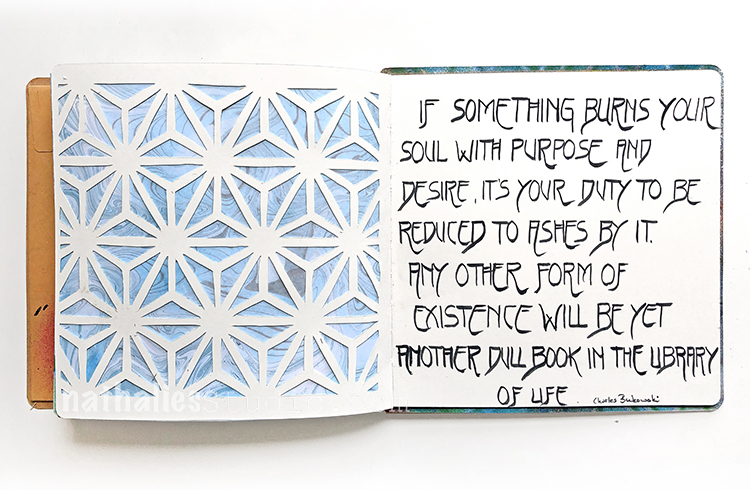 IF SOMETHING BURNS YOUR
SOUL WITH PURPOSE AND
DESIRE, IT'S YOUR DUTY TO BE
REDUCED TO ASHES BY IT.
ANY OTHER FORM OF
EXISTENCE WILL BE YET
ANOTHER DULL BOOK IN THE LIBRARY
OF LIFE.
Charles Bukowski